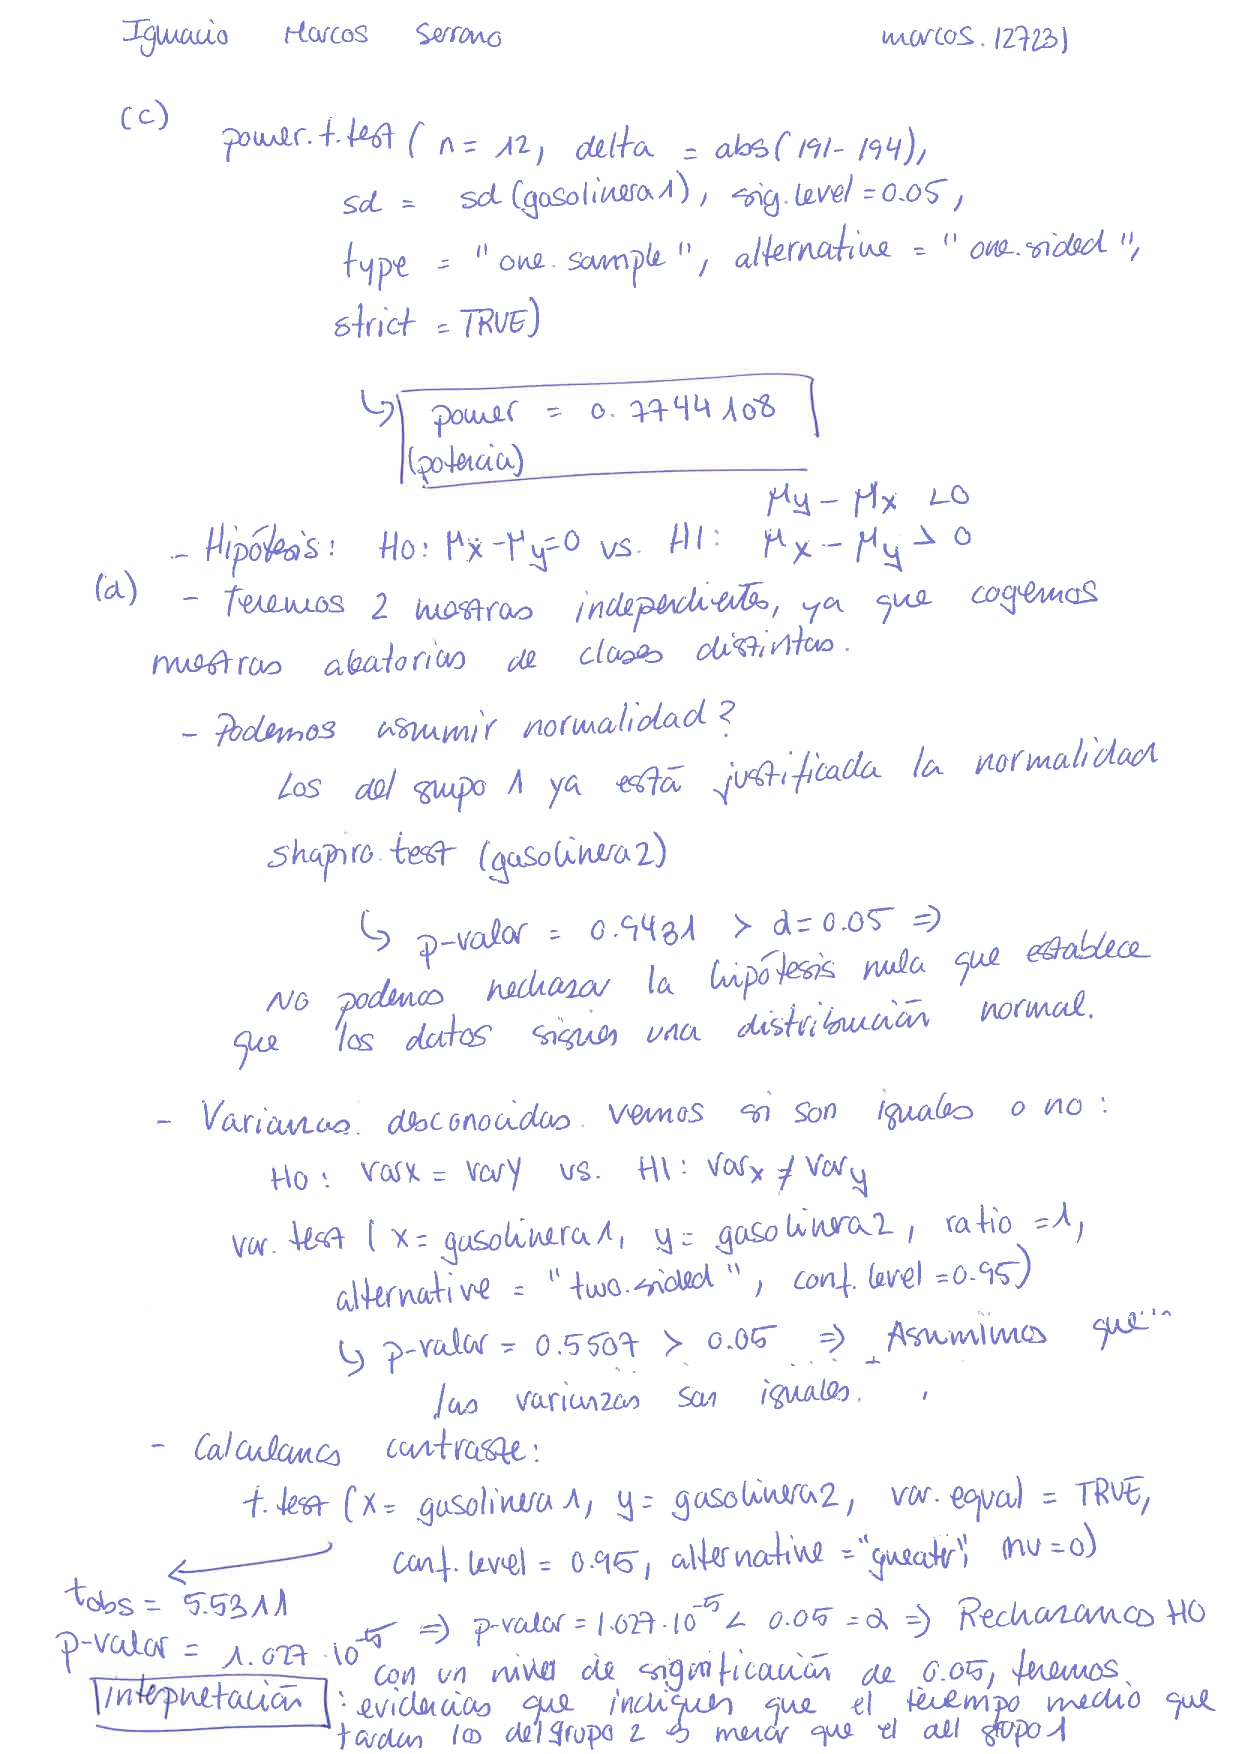 Ignacio Marcos Serrano marcos.127231
(c) power.t.test ( n = 12, delta = abs(191-194),
sd = sd(gasolinera1), sig.level = 0.05,
type = "one.sample", alternative = "one.sided",
strict = TRUE)
↳ power = 0.7744108
(potencia)
μy - μx < 0
- Hipótesis: H0: μx - μy = 0 vs. H1: μx - μy > 0
(d) - Tenemos 2 mostras independientes, ya que cogemos
muestras aleatorias de clases distintas.
- Podemos asumir normalidad?
Los del grupo 1 ya está justificada la normalidad
shapiro.test (gasolinera2)
↳ p-valor = 0.9431 > α = 0.05 ⇒
No podemos rechazar la hipótesis nula que establece
que los datos siguen una distribución normal.
- Varianzas desconocidas. Vemos si son iguales o no:
H0: varx = vary vs. H1: varx ≠ vary
var.test ( x = gasolinera1, y = gasolinera2, ratio = 1,
alternative = "two.sided", conf.level = 0.95)
↳ p-valor = 0.5507 > 0.05 ⇒ Asumimos que
las varianzas son iguales.
- Calculamos contraste:
t.test (x = gasolinera1, y = gasolinera2, var.equal = TRUE,
conf.level = 0.95, alternative = "greater", mu = 0)
tobs = 5.5311
p-valor = 1.027·10⁻⁵ ⇒ p-valor = 1.027·10⁻⁵ < 0.05 = α ⇒ Rechazamos H0
con un nivel de significación de 0.05, tenemos
interpretación : evidencias que indiquen que el tiempo medio que
tardan los del grupo 2 es menor que el del grupo 1